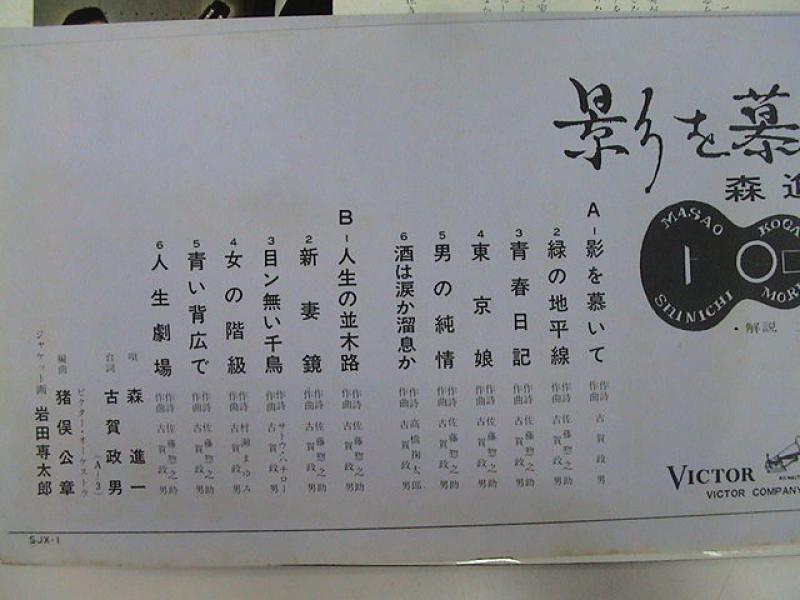 影を慕
森進
MASAO KOGA
SHINICHI MORI
・解説
A-影を慕いて 作詩 作曲 古賀政男
2 緑の地平線 作詩 佐藤惣之助 作曲 古賀政男
3 青春日記 作詩 佐藤惣之助 作曲 古賀政男
4 東京娘 作詩 佐藤惣之助 作曲 古賀政男
5 男の純情 作詩 佐藤惣之助 作曲 古賀政男
6 酒は涙か溜息か 作詩 高橋掬太郎 作曲 古賀政男
B-人生の並木路 作詩 佐藤惣之助 作曲 古賀政男
2 新妻鏡 作詩 佐藤惣之助 作曲 古賀政男
3 目ン無い千鳥 作詩 サトウ・ハチロー 作曲 古賀政男
4 女の階級 作詩 村瀬まゆみ 作曲 古賀政男
5 青い背広で 作詩 佐藤惣之助 作曲 古賀政男
6 人生劇場 作詩 佐藤惣之助 作曲 古賀政男
唄 森進一
台詞 古賀政男 (A-3)
ビクター・オーケストラ
編曲 猪俣公章
ジャケット画 岩田専太郎
VICTOR
VICTOR COMPANY
SJX-1